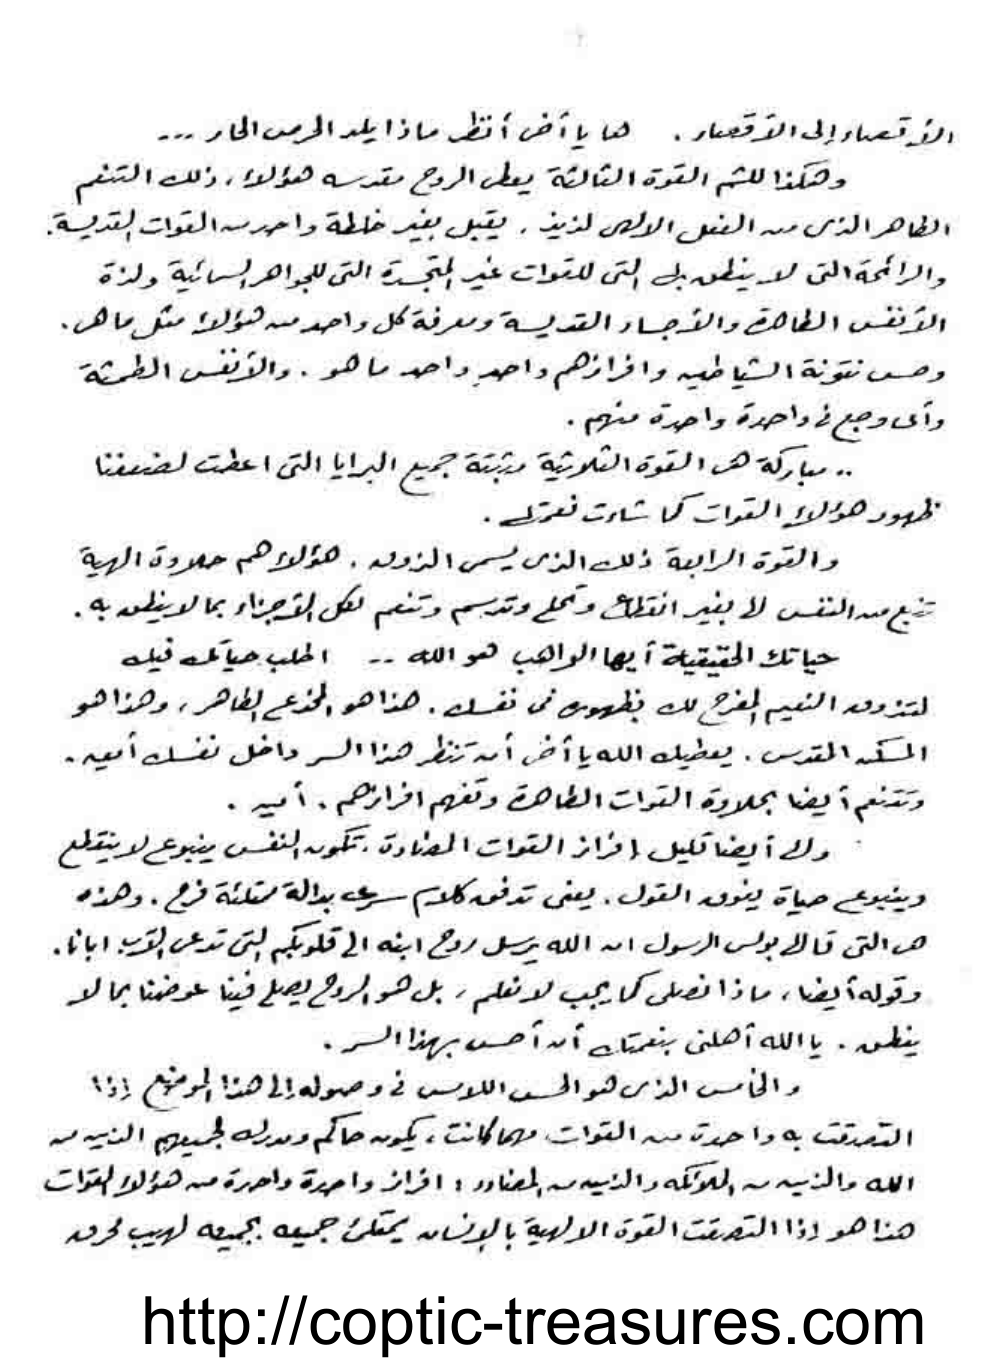 الأقصاء إلى الأقصاء . ها يا أخى أنظر ماذا يلد الحرص الحار ...
وهكذا للشم القوة الثالثة يعطى الروح مقدسه هؤلاء، ذلك التنعم
الطاهر الذى من الفعل الالهى لذيذ . يقبل بغير خلطة واحد من القوات القديسة.
والرائحة التى لا ينطق بها التى للقوات غير المتجسدة التى للجواهر السمائية ولذة
الأنفس الطاهرة والأجساد القديسة ومعرفة كل واحد من هؤلاء مثل ما هى .
وحس نتونة الشياطين وافرازهم واحد واحد ما هو . والأنفس الطمثة
وأى وجع فى واحدة واحدة منهم .
.. مباركة هى القوة الثلاثية مثبتة جميع البرايا التى اعطت لضعفنا
ظهور هؤلاء القوات كما شاءت نعمتها .
والقوة الرابعة ذلك الذى يسمى الذوق . هؤلاء هم حلاوة الهية
تنبع من النفس لها بغير انقطاع وتحلى وتدسم وتنعم لكل الأجزاء بما لا ينطق به .
حياتك الحقيقية أيها الراهب هو الله .. اطلب حياتك فيك
لتذوق النعيم المفرح لك بظهوره فى نفسك . هذا هو المخدع الطاهر، وهذا هو
المسكن المقدس . يعطيك الله يا أخى أن تنظر هذا السر داخل نفسك أمين .
وتتنعم أيضا بحلاوة القوات الطاهرة وتفهم افرازهم . أمين .
ولها أيضا قليل إفراز القوات المضادة . تكون النفس ينبوع لا ينقطع
وينبوع حياة يفوق القول . يعنى تدفق كلام سرى بدالة ممتلئة فرح . وهذه
هى التى قالها بولس الرسول ان الله يرسل روح ابنه الى قلوبكم التى تدعى الآب ابانا .
وقوله أيضا، ماذا نصلى كما يجب لا نعلم، بل هو الروح يصلى فينا عوضنا بما لا
ينطق . يا الله أهلنى بنعمتك أن أحس بهذا السر .
والخامس الذى هو الحس اللامس فى وصوله إلى هذا الموضع إذا
التصقت به واحدة من القوات مهما كانت، يكون حاكم ومدرك لجميعهم الذين من
الله والذين من الملائكة والذين من المضادد : افراز واحدة واحدة من هؤلاء القوات
هذا هو إذا التصقت القوة الالهية بالإنسان يمتلئ جميعه بجميعه لهيب محرق
http://coptic-treasures.com